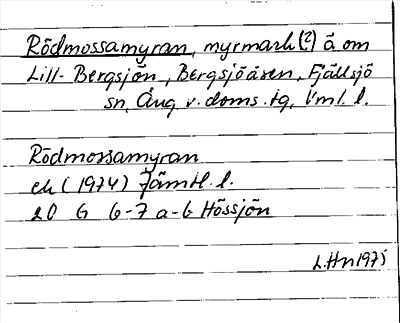 Rödmossamyran, myrmark (?) å om
Lill-Bergsjön, Bergsjöåsen, Fjällsjö
sn, Ång. v. doms. tg, Vml. l.
Rödmossamyran
ek (1974) Jämtl. l.
20 G 6-7 a-b Hössjön
L.Hn 1975